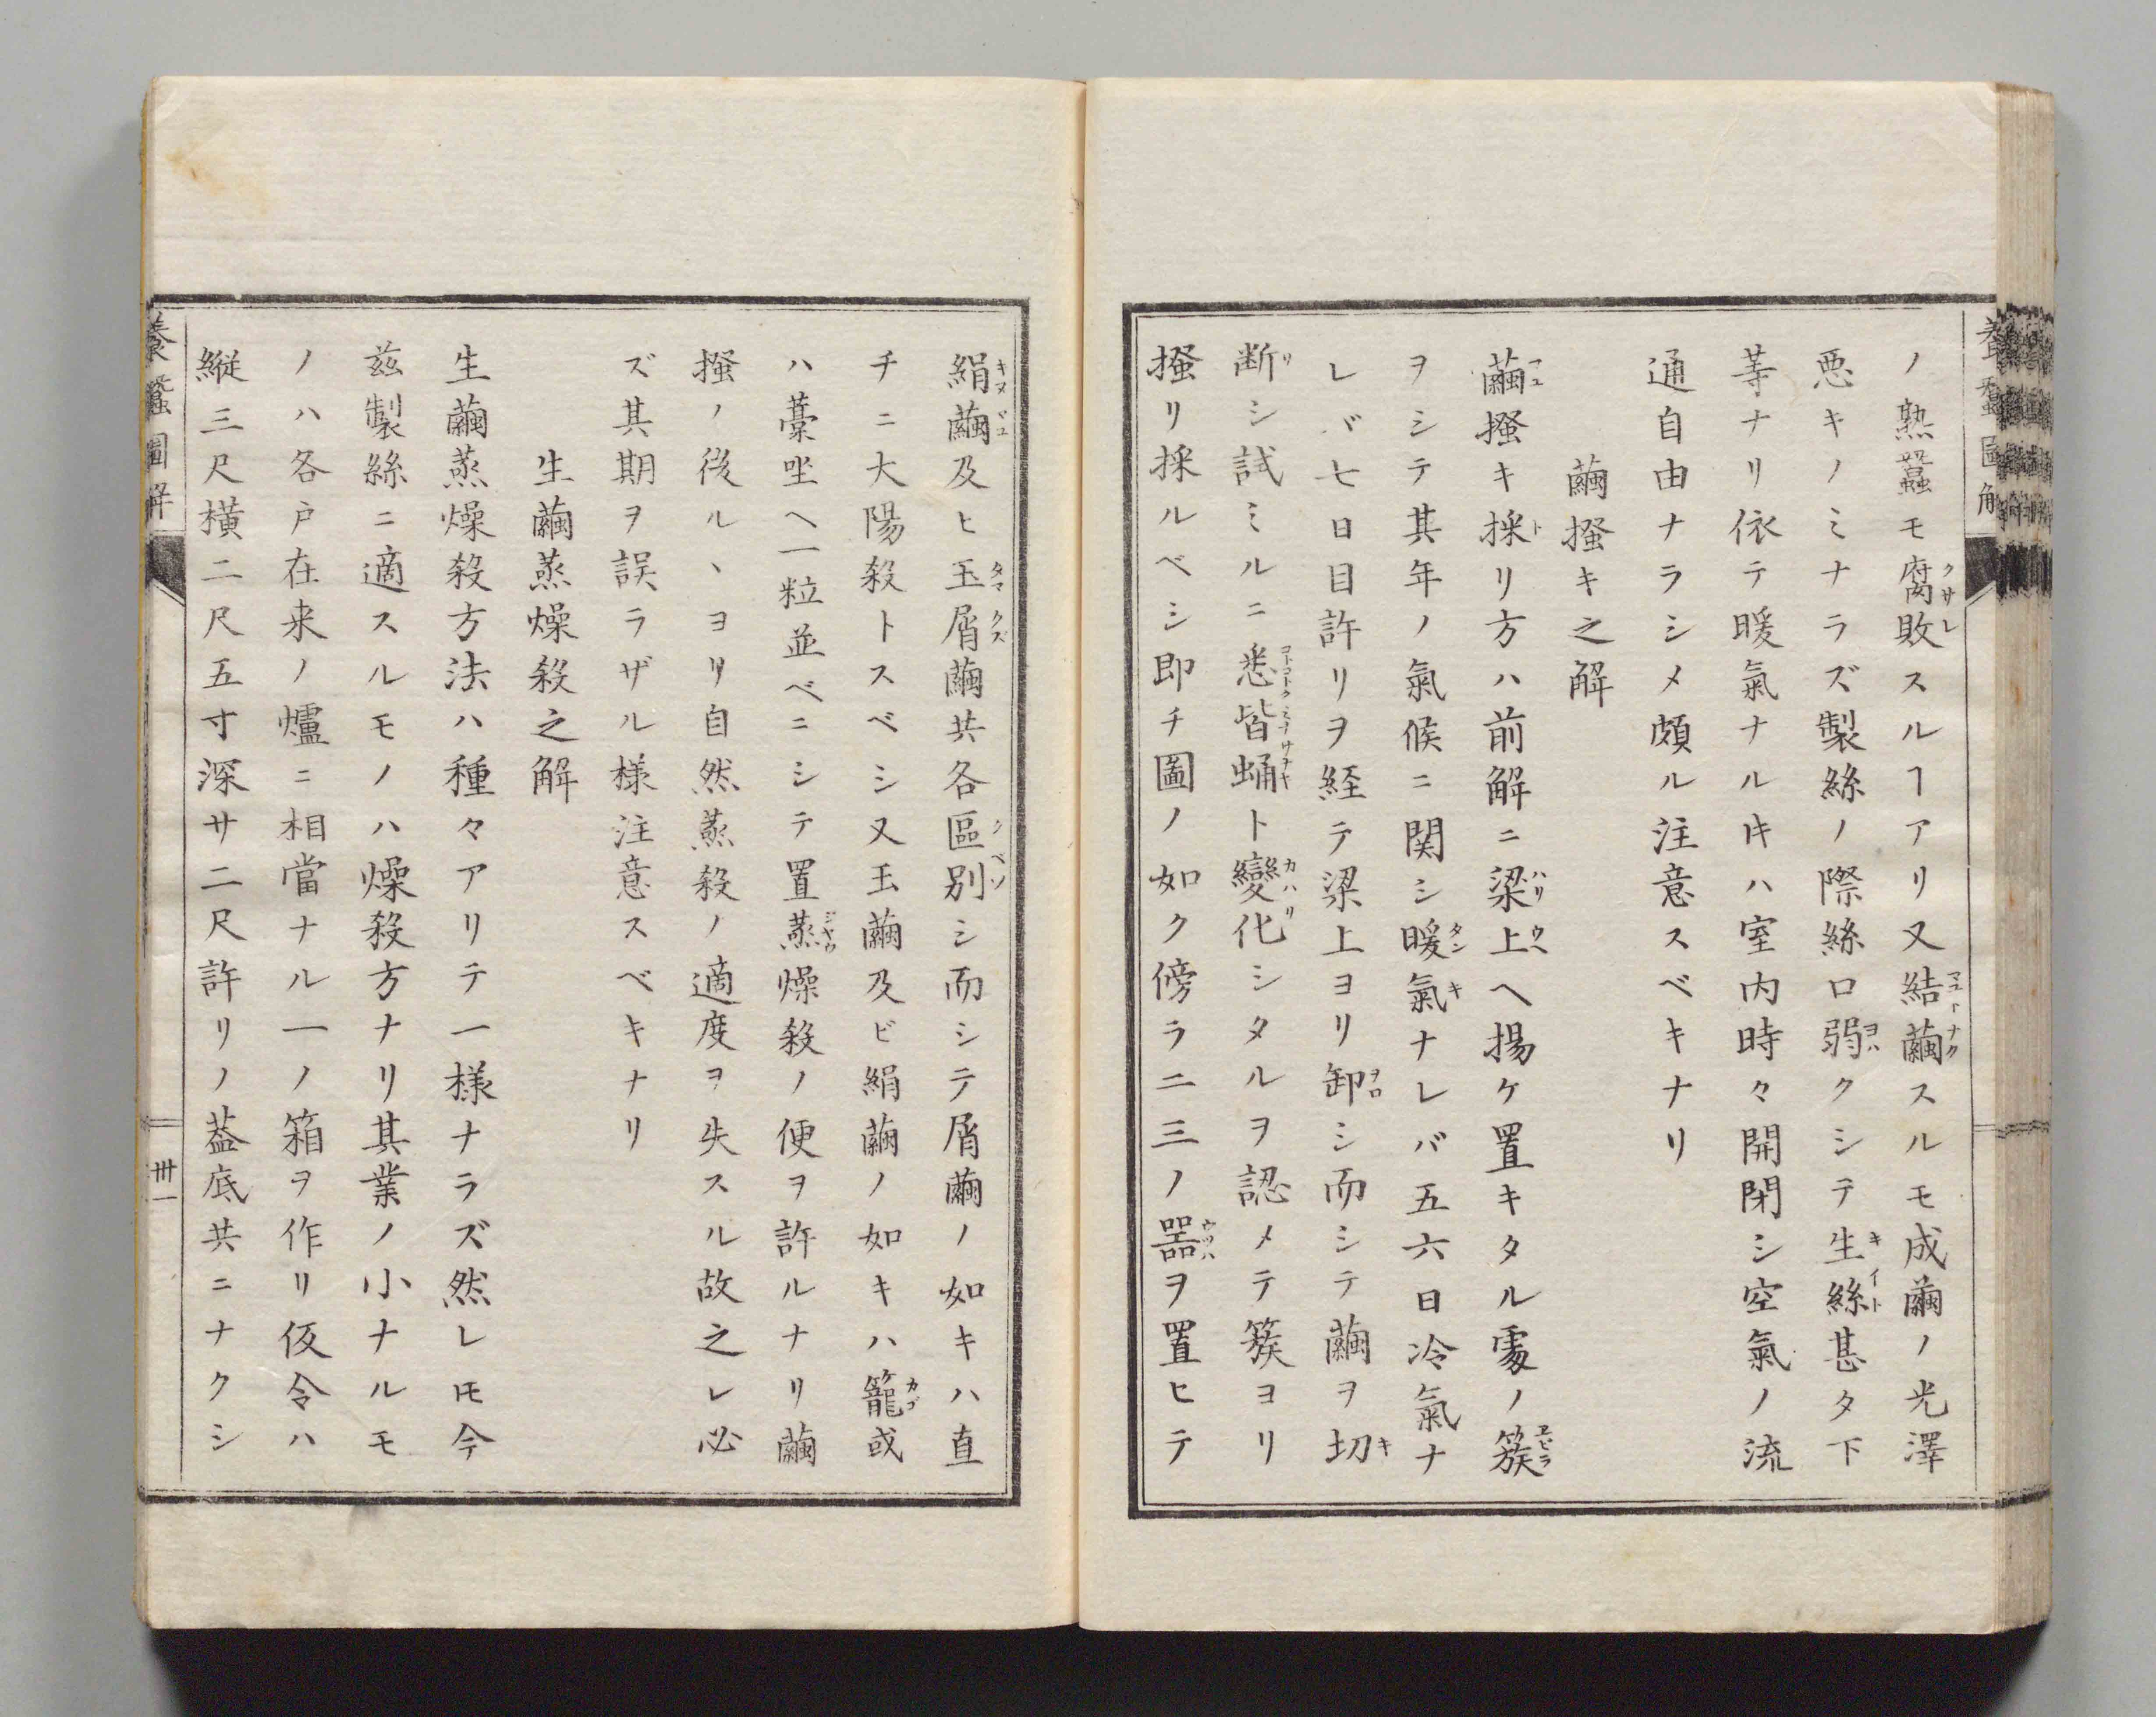 養蠶圖解
ノ熟蠶モ腐敗スルヿアリ又結繭スルモ成繭ノ光澤
悪キノミナラズ製絲ノ際絲口弱クシテ生絲甚タ下
等ナリ依テ暖氣ナルㇳキハ室内時々開閉シ空氣ノ流
通自由ナラシメ頗ル注意スベキナリ
繭搔キ之解
繭搔キ採リ方ハ前解ニ梁上ヘ揚ケ置キタル䖏ノ簇
ヲシテ其年ノ氣候ニ関シ暖氣ナレバ五六日冷氣ナ
レバ七日目許リヲ経テ梁上ヨリ卸シ而シテ繭ヲ切
断シ試ミルニ悉皆蛹ト變化シタルヲ認メテ簇ヨリ
搔リ採ルベシ即チ圖ノ如ク傍ラニ三ノ器ヲ置ヒテ
絹繭及ヒ玉屑繭共各區別シ而シテ屑繭ノ如キハ直
チニ大陽殺トスベシ又玉繭及ビ絹繭ノ如キハ籠或
ハ藁坐ヘ一粒並ベニシテ置蒸燥殺ノ便ヲ許ルナリ繭
搔ノ後ルヽヨリ自然蒸殺ノ適度ヲ失スル故之レ必
ズ其期ヲ誤ラザル様注意スベキナリ
生繭蒸燥殺之解
生繭蒸燥殺方法ハ種々アリテ一様ナラズ然レㇳモ今
茲製絲ニ適スルモノハ燥殺方ナリ其業ノ小ナルモ
ノハ各戸在来ノ爐ニ相當ナル一ノ箱ヲ作リ仮令ハ
縦三尺横二尺五寸深サ二尺許リノ葢底共ニナクシ
養蠶圖解
卅一